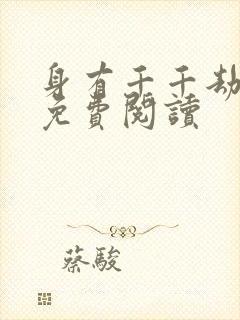 身有千千劫
免費閱讀
蔡駿